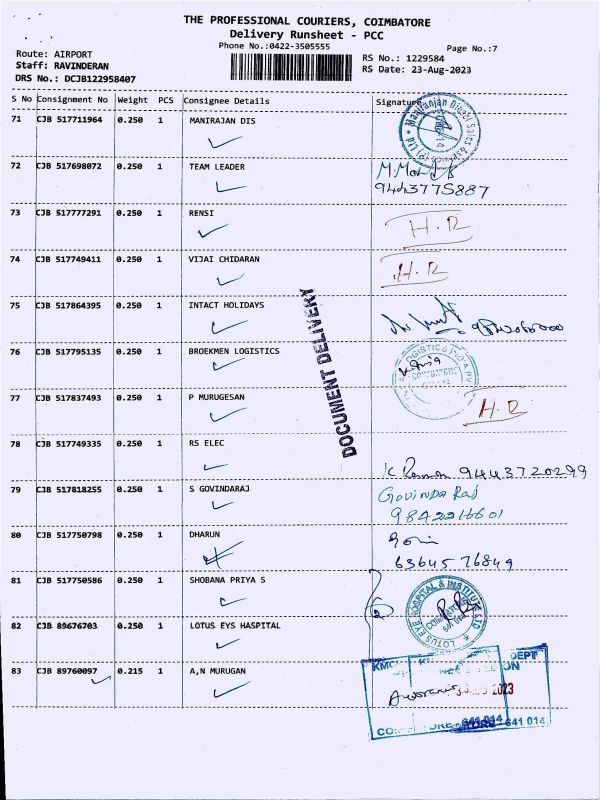 THE PROFESSIONAL COURIERS, COIMBATORE
Delivery Runsheet - PCC
Phone No.:0422-3505555
Page No.:7
Route: AIRPORT
Staff: RAVINDERAN
DRS No.: DCJB122958407
RS No.: 1229584
RS Date: 23-Aug-2023
S No Consignment No Weight PCS Consignee Details Signature
71 CJB 517711964 0.250 1 MANIRAJAN DIS
72 CJB 517698072 0.250 1 TEAM LEADER
9443775887
73 CJB 517777291 0.250 1 RENSI H.R
74 CJB 517749411 0.250 1 VIJAI CHIDARAN H.R
75 CJB 517864395 0.250 1 INTACT HOLIDAYS
76 CJB 517795135 0.250 1 BROEKMEN LOGISTICS
77 CJB 517837493 0.250 1 P MURUGESAN H.R
DOCUMENT DELIVERY
78 CJB 517749335 0.250 1 RS ELEC
9443720299
79 CJB 517818255 0.250 1 S GOVINDARAJ Govinda Raj
9842216601
80 CJB 517750798 0.250 1 DHARUN
6364576849
81 CJB 517750586 0.250 1 SHOBANA PRIYA S
82 CJB 89676703 0.250 1 LOTUS EYS HASPITAL
LOTUS EYE HOSPITAL & INSTITUTE LTD
83 CJB 89760097 0.215 1 A,N MURUGAN
KMC
DEPT
2023
641 014